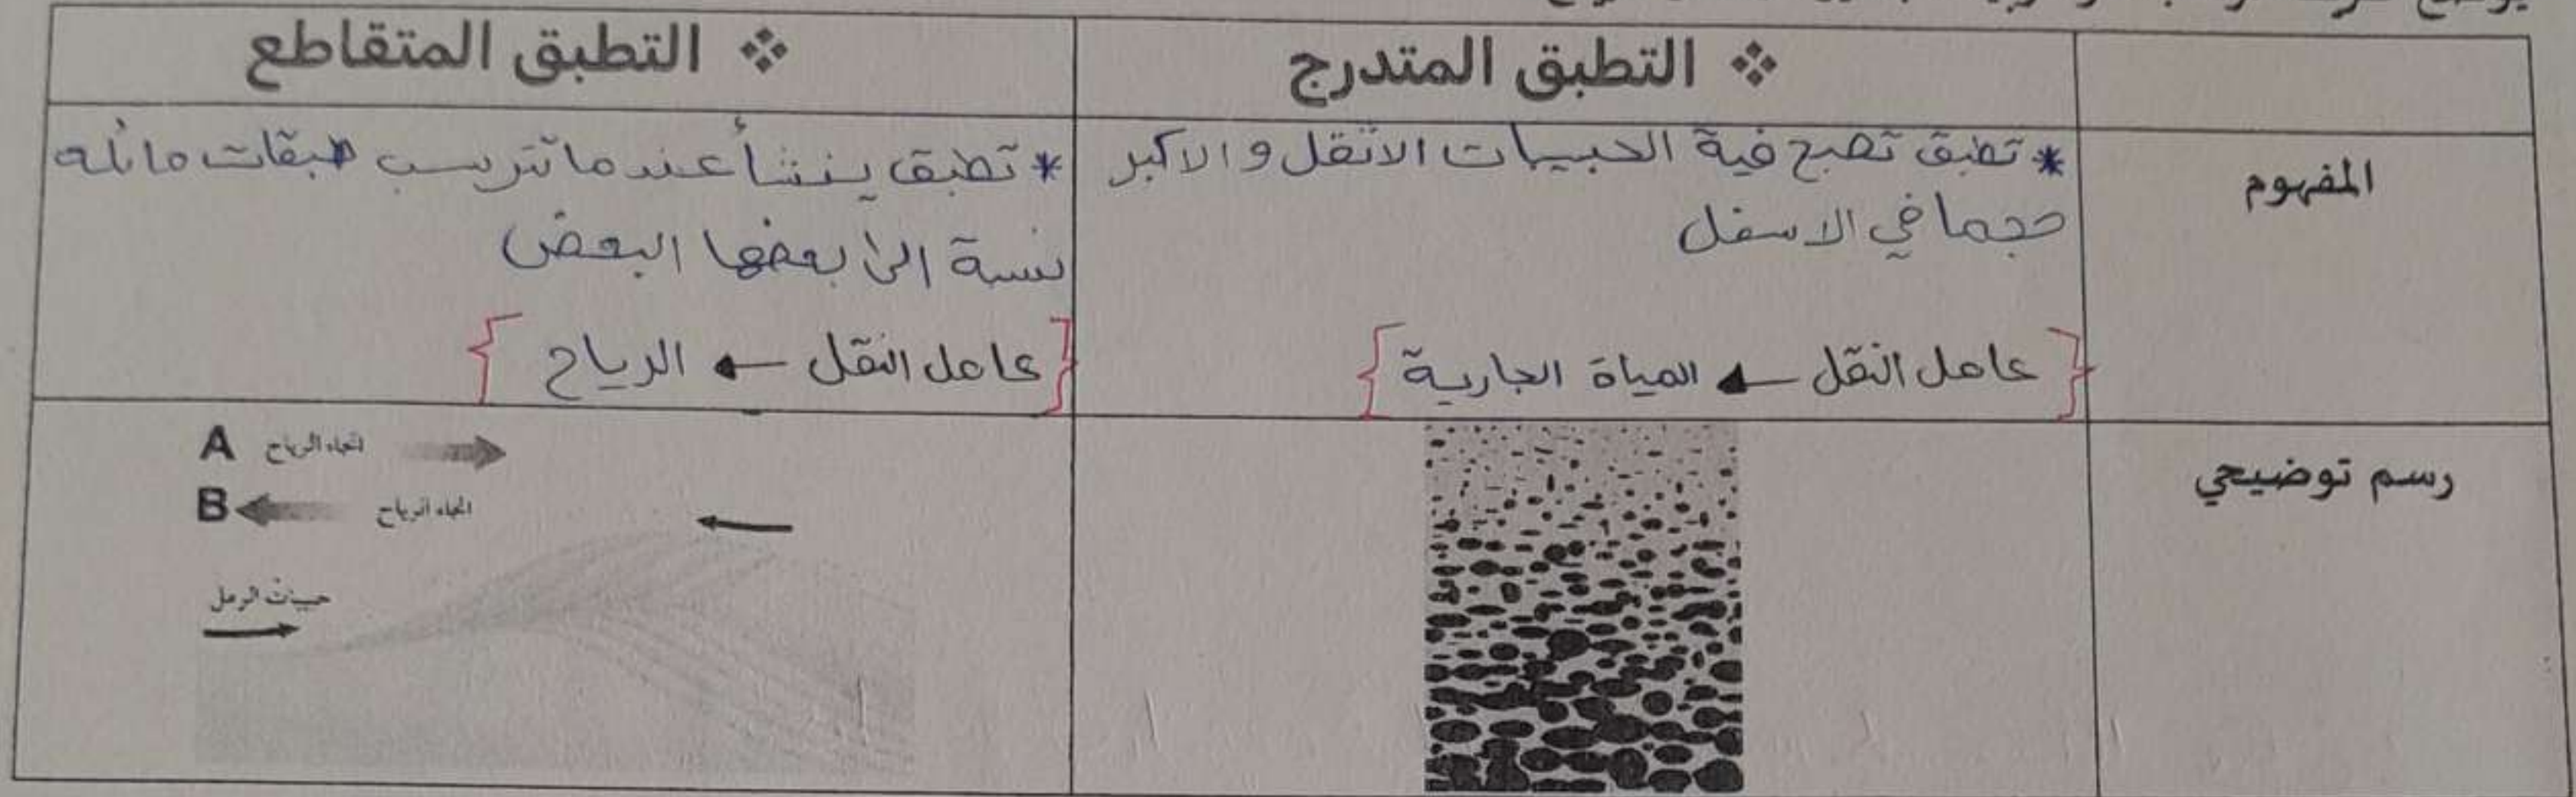 ❖ التطبق المتدرج
❖ التطبق المتقاطع
المفهوم
* تطبق تصبح فية الحبيبات الاثقل والاكبر
حجما في الاسفل
{عامل النقل ← المياة الجارية}
* تطبق ينشأ عندما تترسب طبقات مائله
نسبة الى بعضها البعض
{عامل النقل ← الرياح}
رسم توضيحي
A اتجاه الرياح
B اتجاه الرياح
حبيبات الرمل